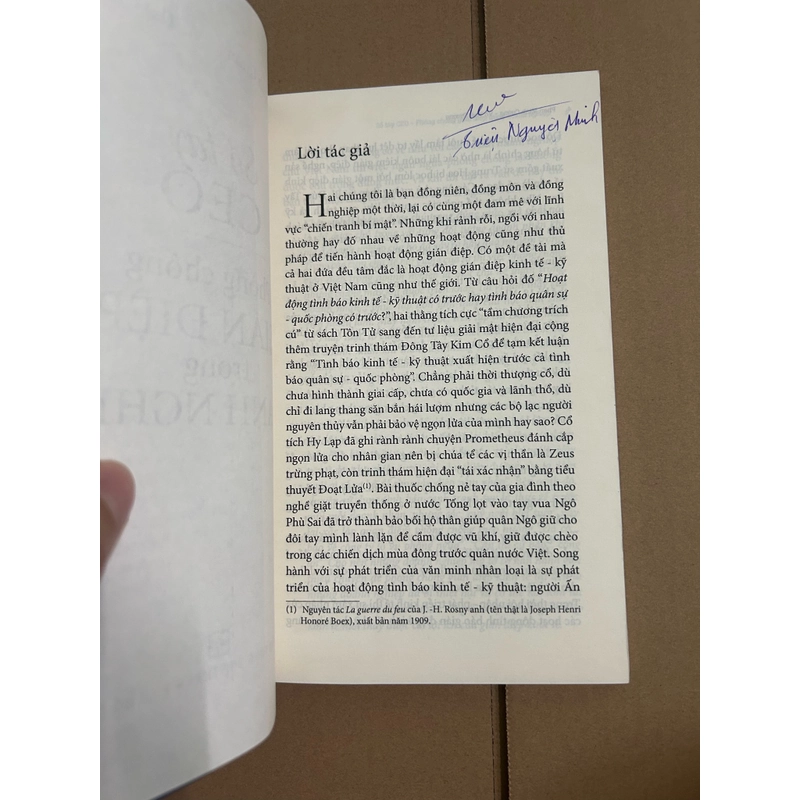 Nguyệt Minh
Lời tác giả
Hai chúng tôi là bạn đồng niên, đồng môn và đồng
nghiệp một thời, lại có cùng một đam mê với lĩnh
vực “chiến tranh bí mật”. Những khi rảnh rỗi, ngồi với nhau
thường hay đố nhau về những hoạt động cũng như thủ
pháp để tiến hành hoạt động gián điệp. Có một đề tài mà
cả hai đứa đều tâm đắc là hoạt động gián điệp kinh tế - kỹ
thuật ở Việt Nam cũng như thế giới. Từ câu hỏi đố “Hoạt
động tình báo kinh tế - kỹ thuật có trước hay tình báo quân sự
- quốc phòng có trước?”, hai thằng tích cực “tầm chương trích
cú” từ sách Tôn Tử sang đến tư liệu giải mật hiện đại cộng
thêm truyện trinh thám Đông Tây Kim Cổ để tạm kết luận
rằng “Tình báo kinh tế - kỹ thuật xuất hiện trước cả tình
báo quân sự - quốc phòng”. Chẳng phải thời thượng cổ, dù
chưa hình thành giai cấp, chưa có quốc gia và lãnh thổ, dù
chỉ đi lang thang săn bắn hái lượm nhưng các bộ lạc người
nguyên thủy vẫn phải bảo vệ ngọn lửa của mình hay sao? Cổ
tích Hy Lạp đã ghi rành rành chuyện Prometheus đánh cắp
ngọn lửa cho nhân gian nên bị chúa tể các vị thần là Zeus
trừng phạt, còn trinh thám hiện đại “tái xác nhận” bằng tiểu
thuyết Đoạt Lửa(1). Bài thuốc chống nẻ tay của gia đình theo
nghề giặt truyền thống ở nước Tống lọt vào tay vua Ngô
Phù Sai đã trở thành bảo bối hộ thân giúp quân Ngô giữ cho
đôi tay mình lành lặn để cầm được vũ khí, giữ được chèo
trong các chiến dịch mùa đông trước quân nước Việt. Song
hành với sự phát triển của văn minh nhân loại là sự phát
triển của hoạt động tình báo kinh tế - kỹ thuật: người Ấn
(1) Nguyên tác La guerre du feu của J. -H. Rosny anh (tên thật là Joseph Henri
Honoré Boex), xuất bản năm 1909.